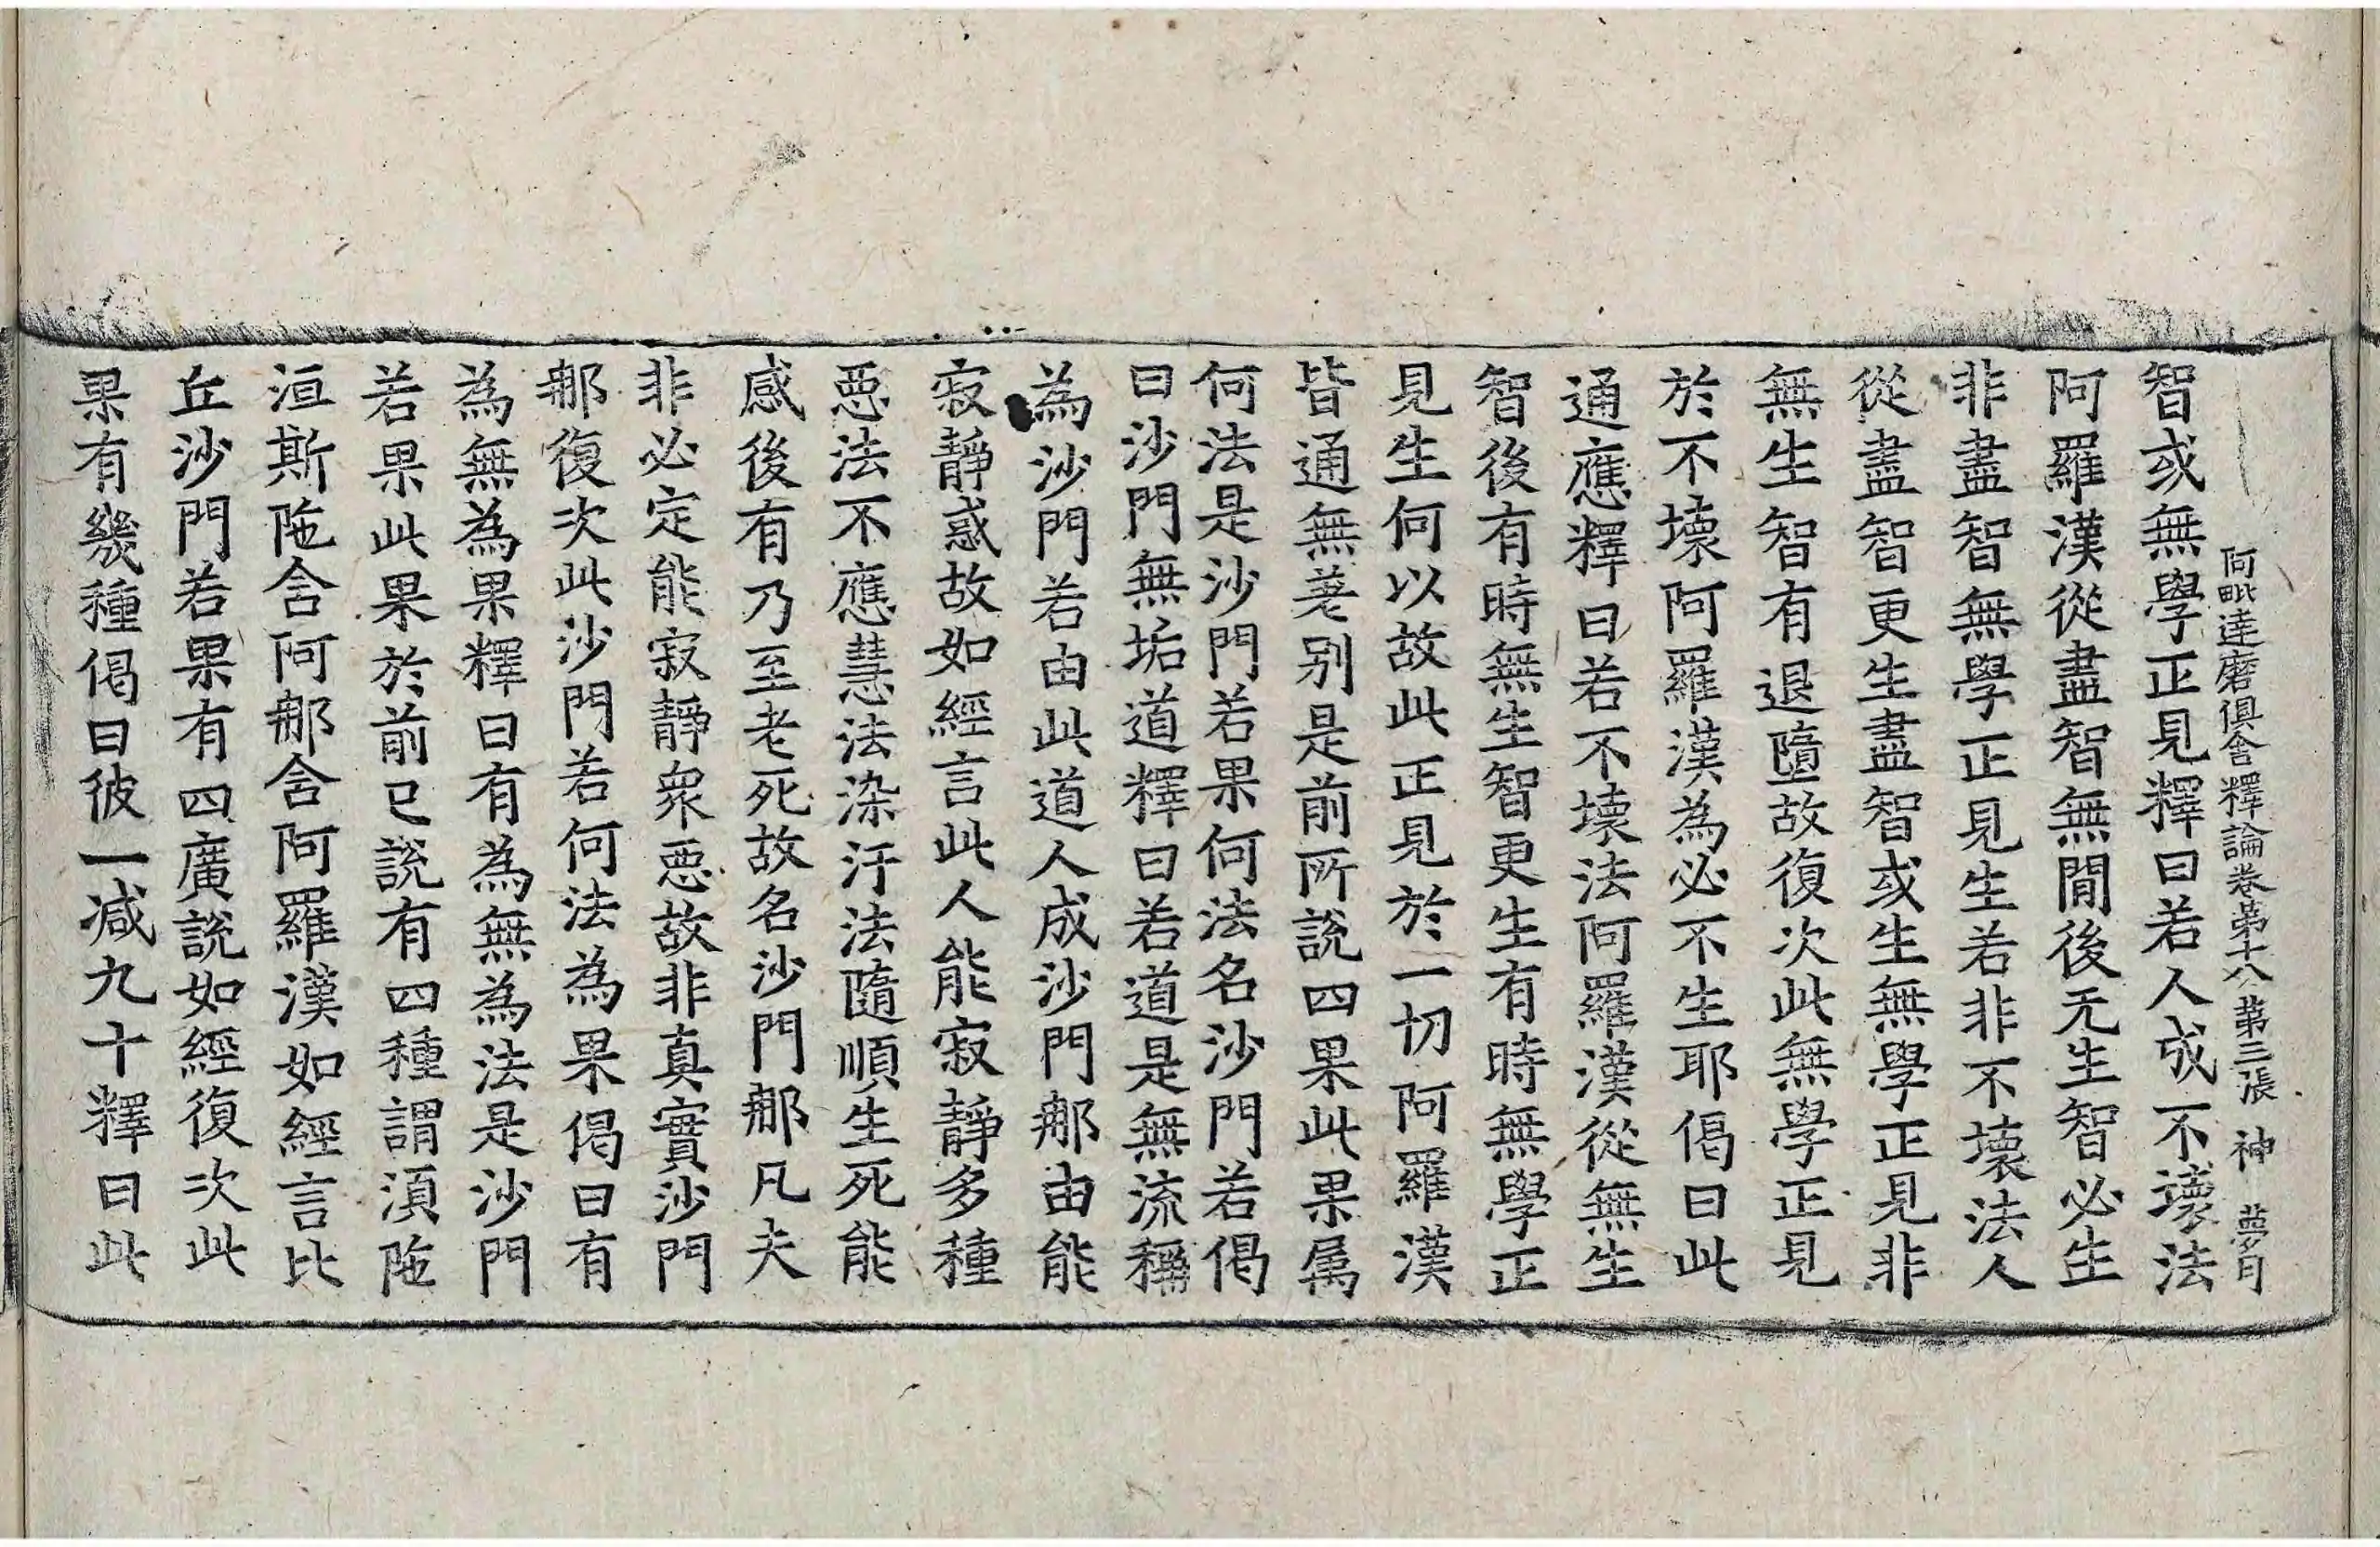 阿毗達磨俱舍釋論卷第十八 第三張 神 夢月
智或無學正見釋曰若人成不壞法
阿羅漢從盡智無間後无生智必生
非盡智無學正見生若非不壞法人
從盡智更生盡智或生無學正見非
無生智有退墮故復次此無學正見
於不壞阿羅漢為必不生耶偈曰此
通應釋曰若不壞法阿羅漢從無生
智後有時無生智更生有時無學正
見生何以故此正見於一切阿羅漢
皆通無差別是前所說四果此果属
何法是沙門若果何法名沙門若偈
曰沙門無垢道釋曰若道是無流稱
為沙門若由此道人成沙門那由能
寂靜惑故如經言此人能寂靜多種
惡法不應慧法染汙法隨順生死能
感後有乃至老死故名沙門那凡夫
非必定能寂靜衆惡故非真實沙門
那復次此沙門若何法為果偈曰有
為無為果釋曰有為無為法是沙門
若果此果於前已說有四種謂湏陁
洹斯陁含阿那含阿羅漢如經言比
丘沙門若果有四廣說如經復次此
果有幾種偈曰彼一减九十釋曰此